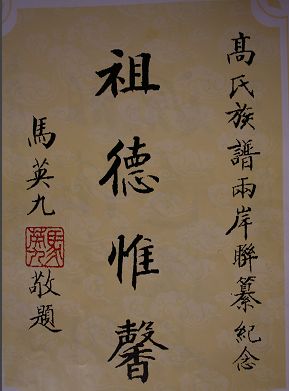 高氏族譜兩岸聯纂紀念
祖德惟馨
馬英九敬題
馬英九